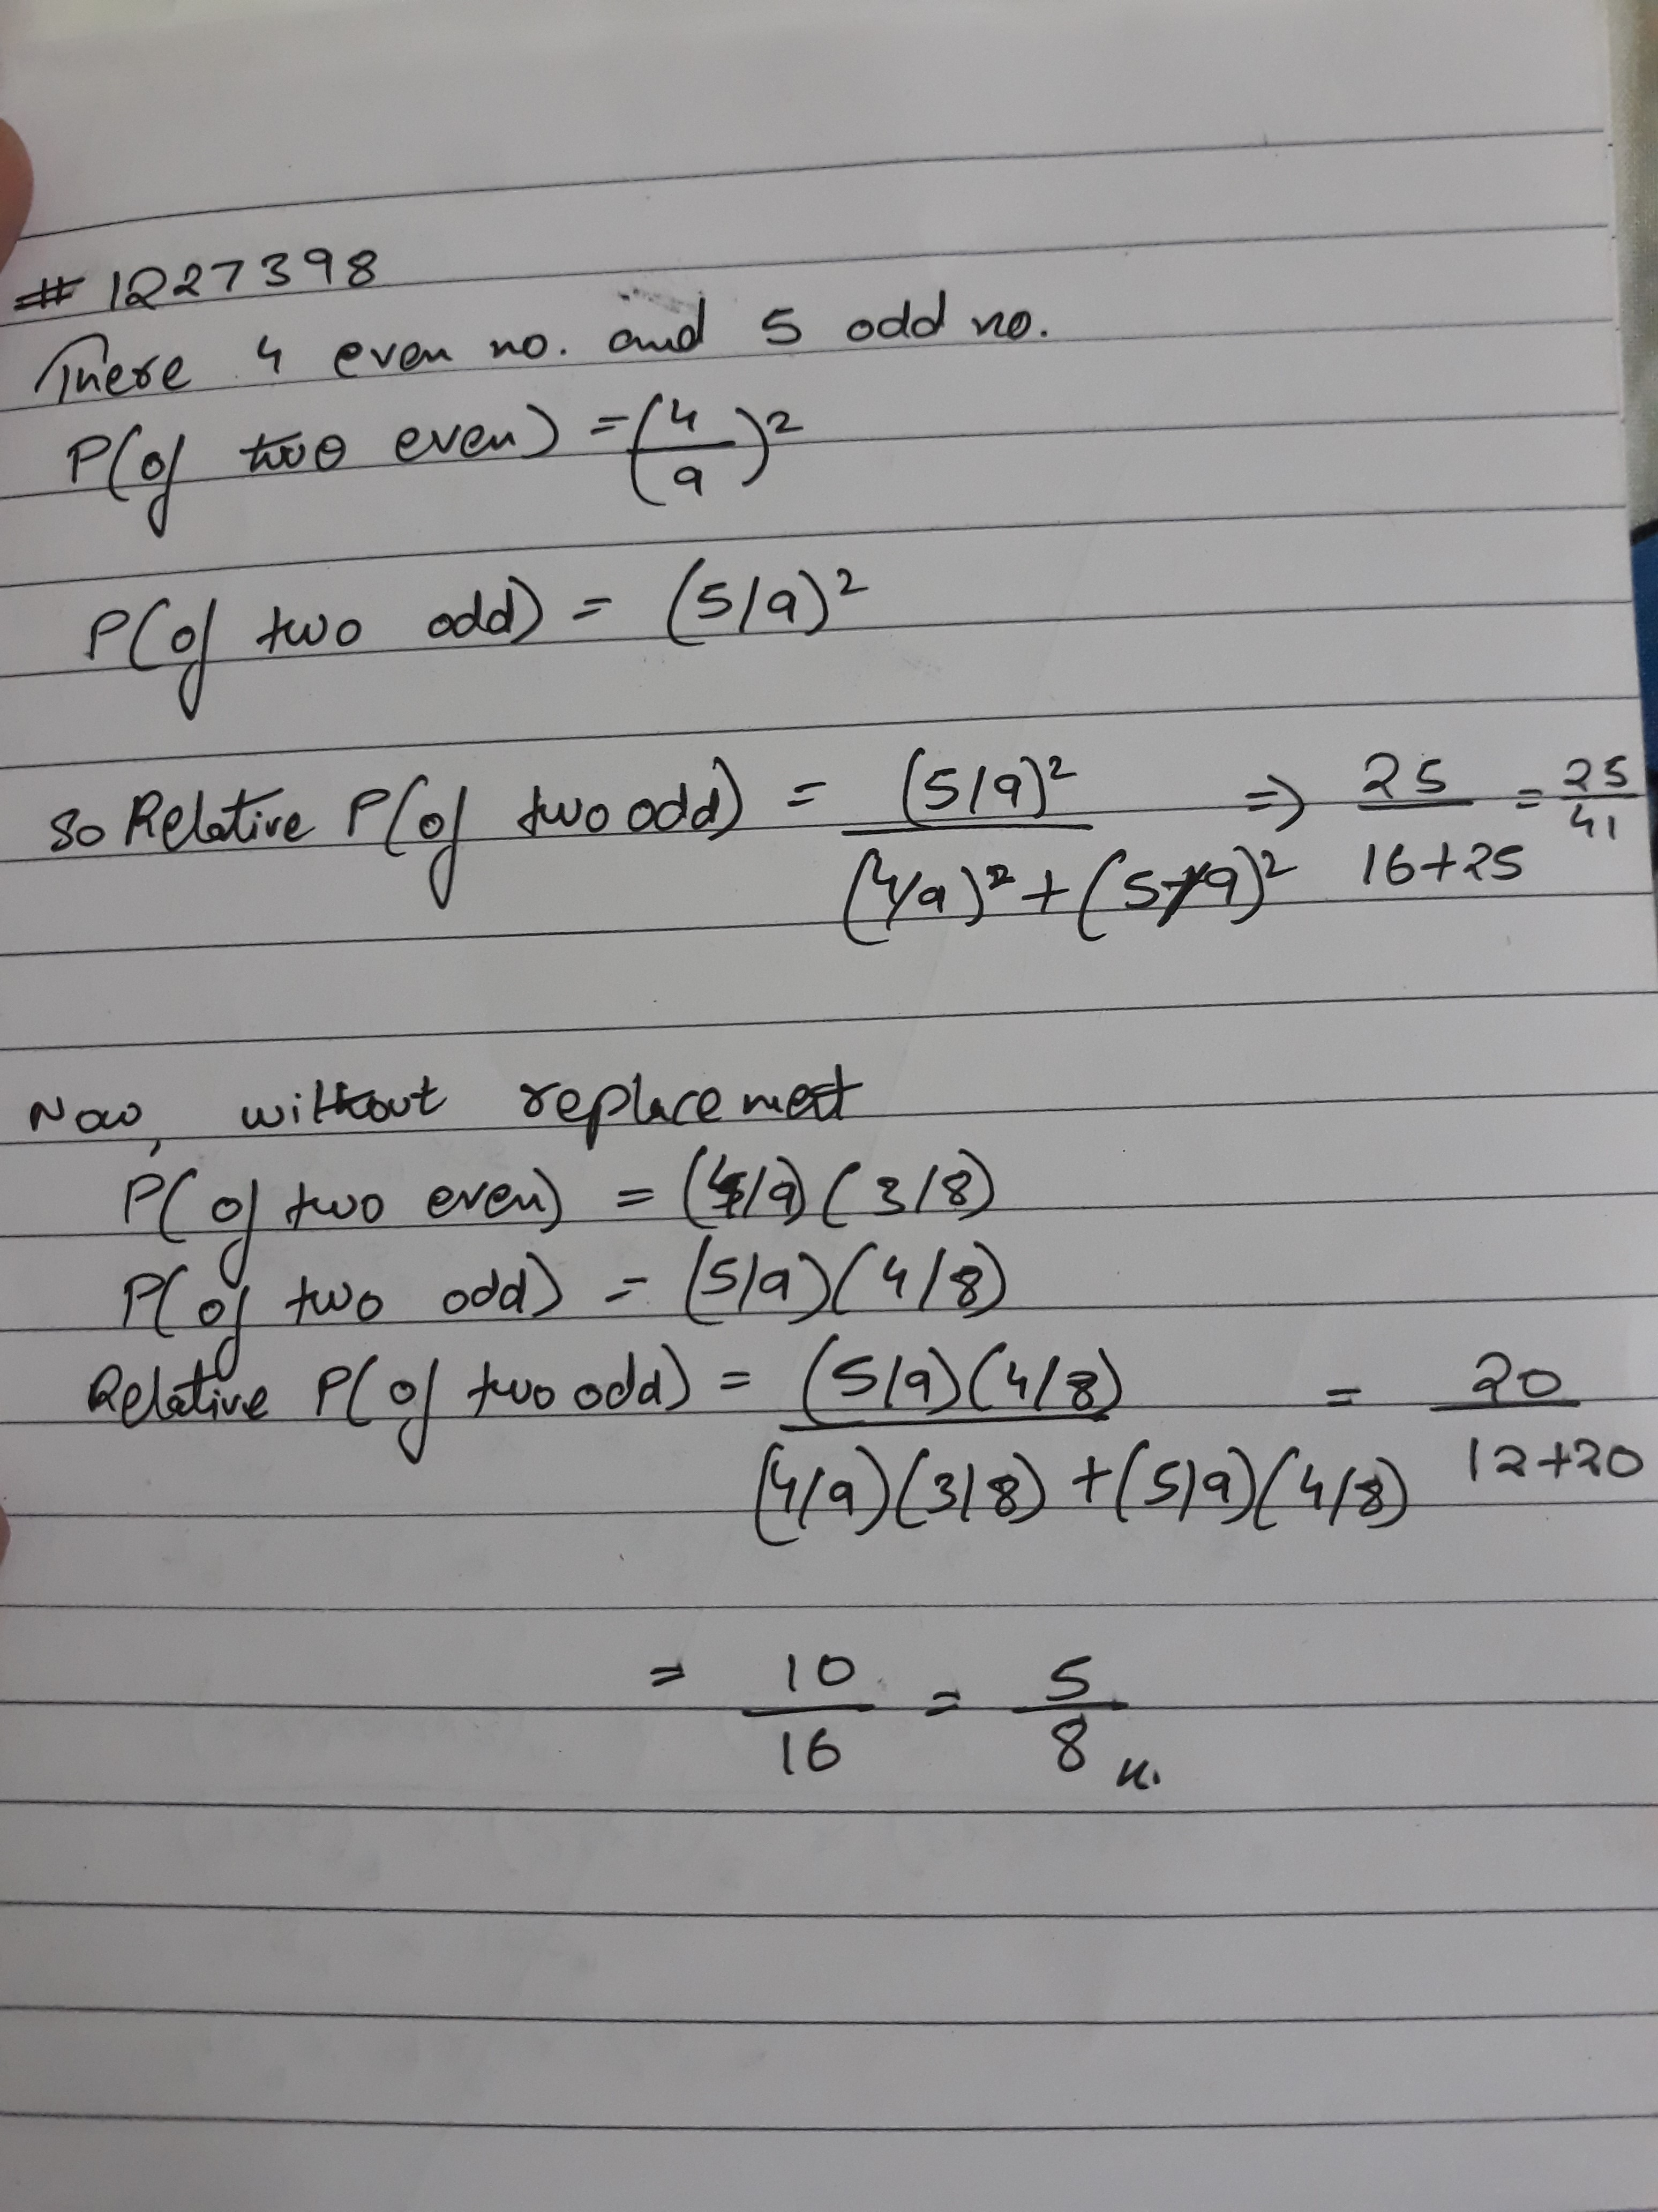 # 1227398
There 4 even no. and 5 odd no.
P(of two even) = (4/9)²
P(of two odd) = (5/9)²
so Relative P(of two odd) = (5/9)² / (4/9)² + (5/9)² ⇒ 25 / 16+25 = 25/41
Now, without replacement
P(of two even) = (4/9)(3/8)
P(of two odd) = (5/9)(4/8)
Relative P(of two odd) = (5/9)(4/8) / (4/9)(3/8) + (5/9)(4/8) = 20 / 12+20
= 10/16 = 5/8